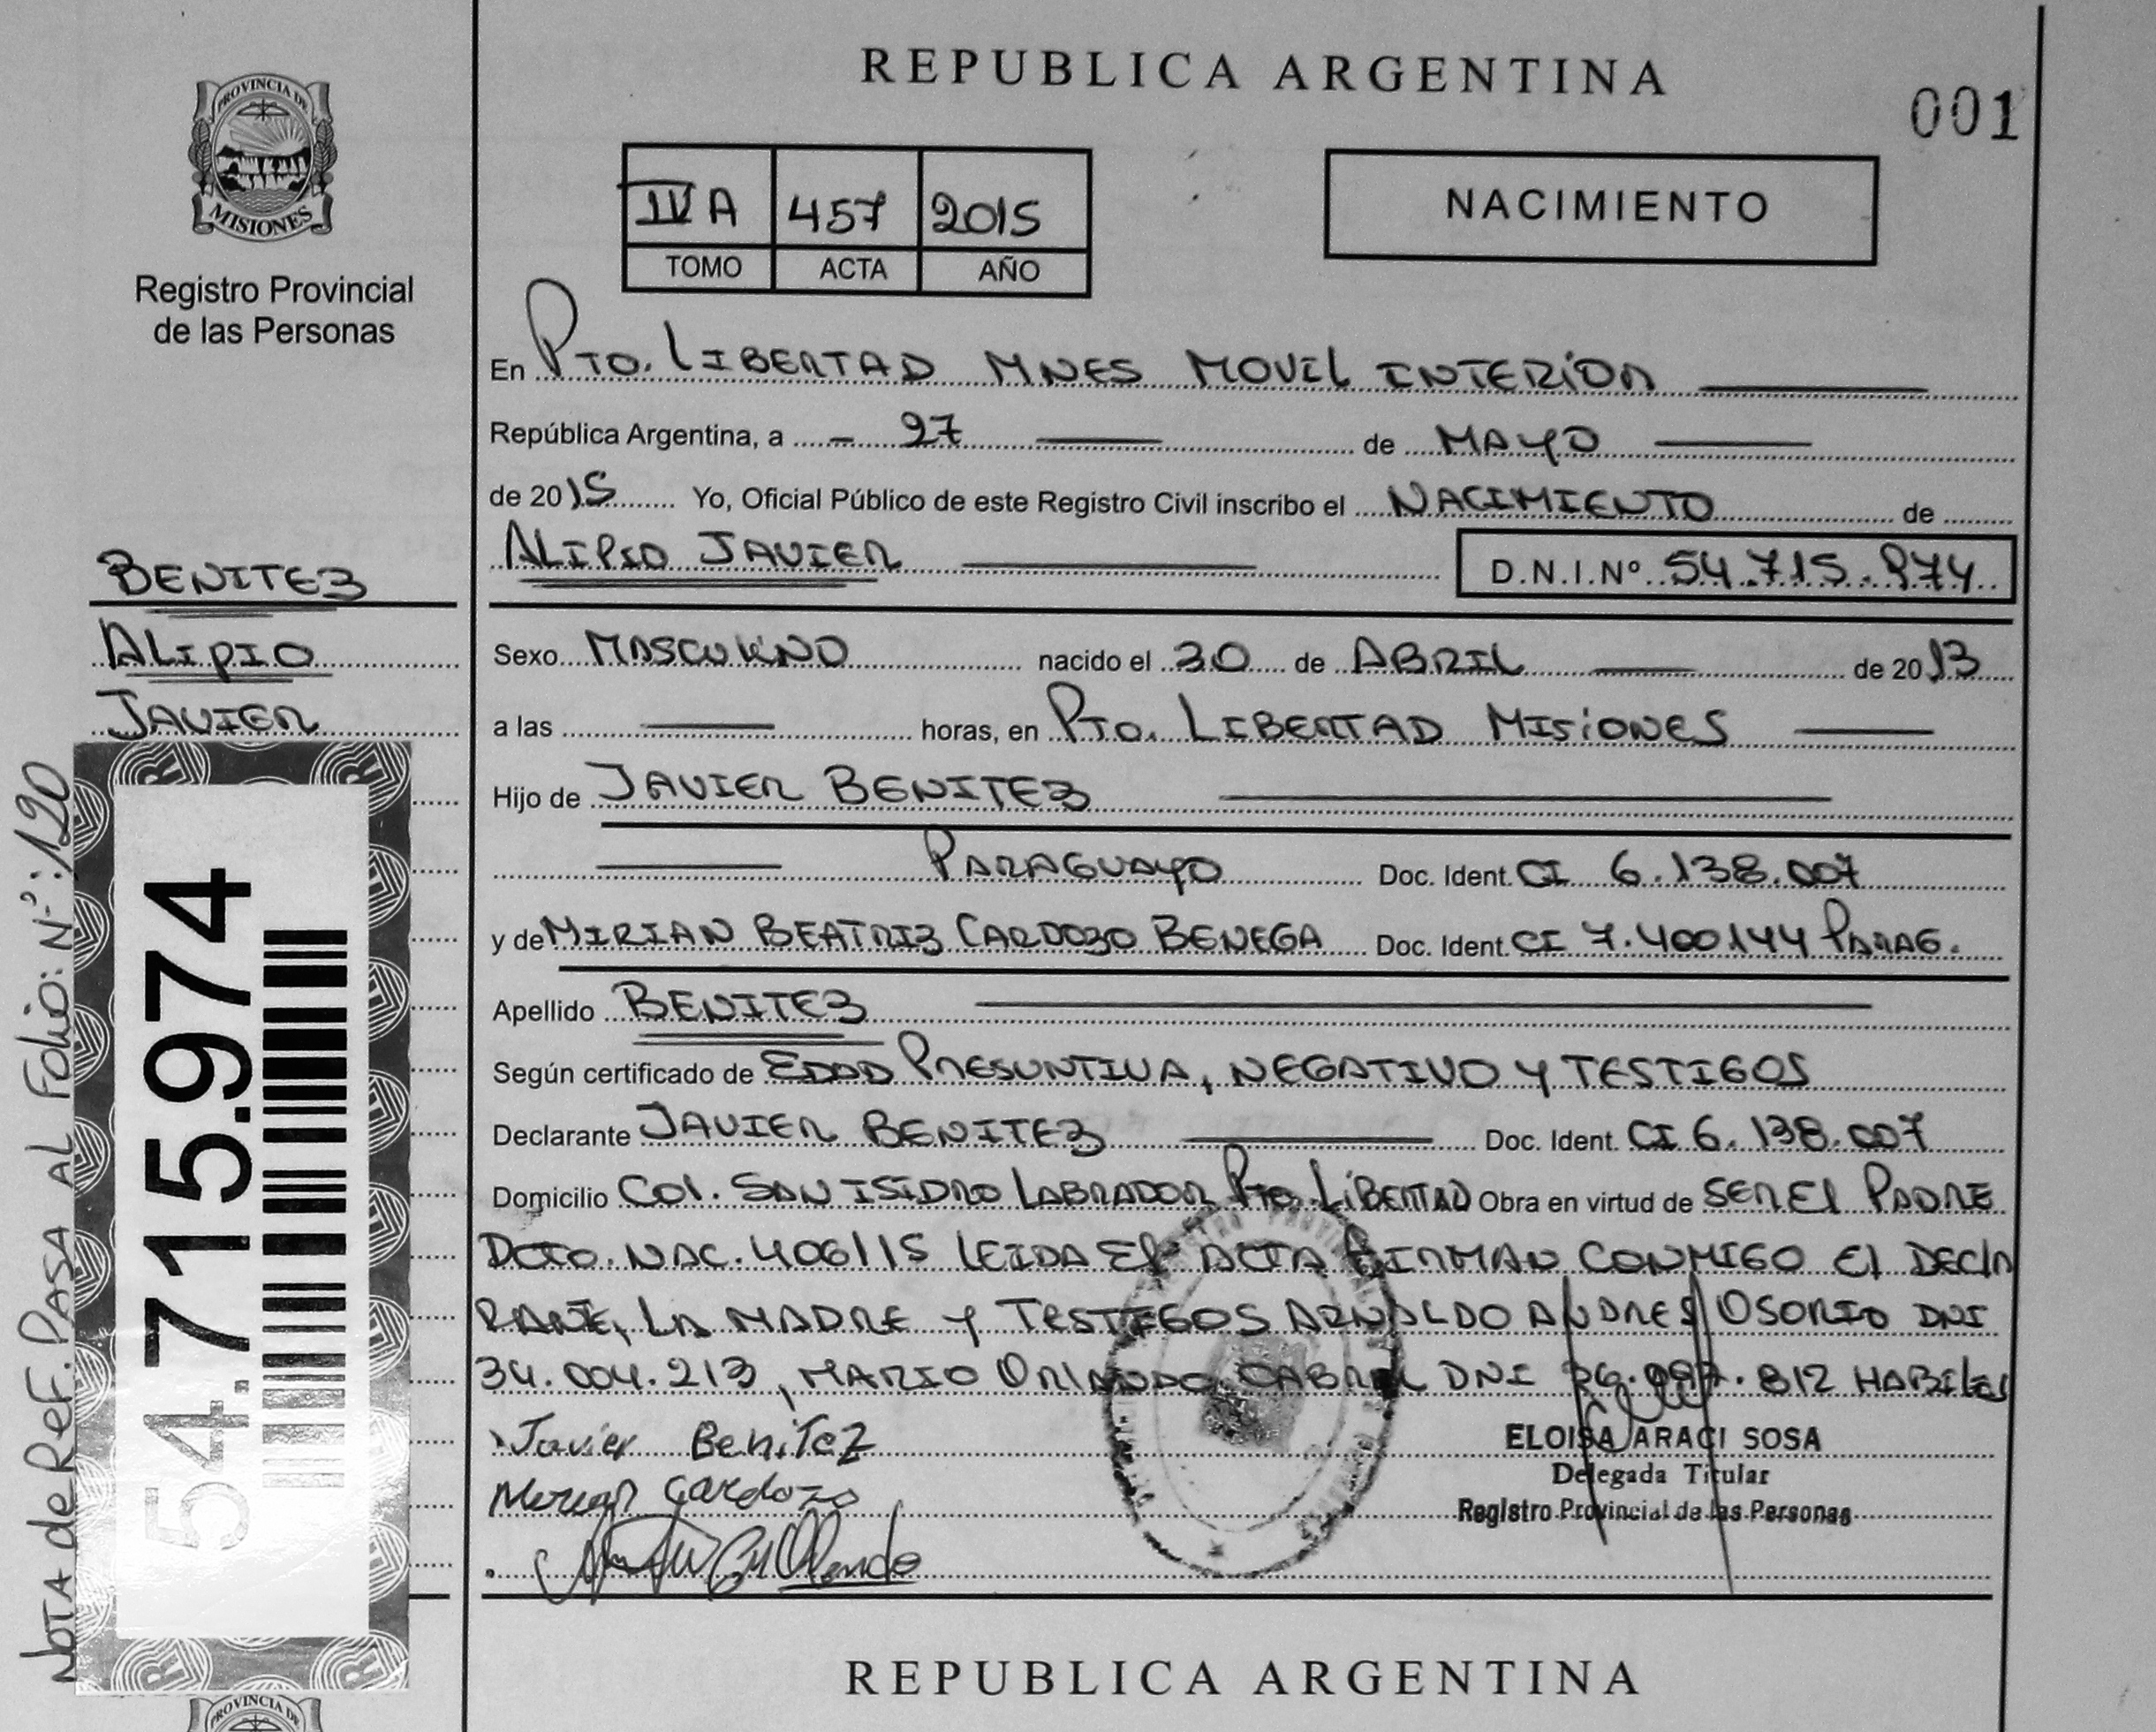 REPUBLICA ARGENTINA
001
PROVINCIA DE
MISIONES
Registro Provincial
de las Personas
IV A 457 2015
TOMO ACTA AÑO
NACIMIENTO
En Pto. LIBERTAD MNES MOVIL INTERIOR
República Argentina, a 27 de MAYO
de 2015 Yo, Oficial Público de este Registro Civil inscribo el NACIMIENTO de
ALIPIO JAVIER D.N.I.Nº 54.715.974
BENITEZ
ALIPIO
JAVIER
Sexo MASCULINO nacido el 30 de ABRIL de 2013
a las horas, en Pto. LIBERTAD MISIONES
Hijo de JAVIER BENITEZ
PARAGUAYO Doc. Ident. CI 6.138.007
y de MIRIAN BEATRIZ CARDOZO BENEGA Doc. Ident. CI 7.400.144 PARAG.
Apellido BENITEZ
Según certificado de EDAD PRESUNTIVA, NEGATIVO Y TESTIGOS
Declarante JAVIER BENITEZ Doc. Ident. CI 6.138.007
Domicilio Col. SAN ISIDRO LABRADOR Pto. LIBERTAD Obra en virtud de SER El PADRE
DCTO. NAC. 406/15 LEIDA El ACTA FIRMAN CONMIGO El DECLA
RANTE, LA MADRE Y TESTIGOS ARNALDO ANDRES OSORIO DNI
34.004.213, MARIO ORLANDO CABRAL DNI 812 HABILES
Javier BeniTeZ
Cardozo
ELOISA ARACI SOSA
Delegada Titular
Registro Provincial de las Personas
NOTA de Ref. PASA AL Folio: Nº: 120
54.715.974
REPUBLICA ARGENTINA
PROVINCIA DE